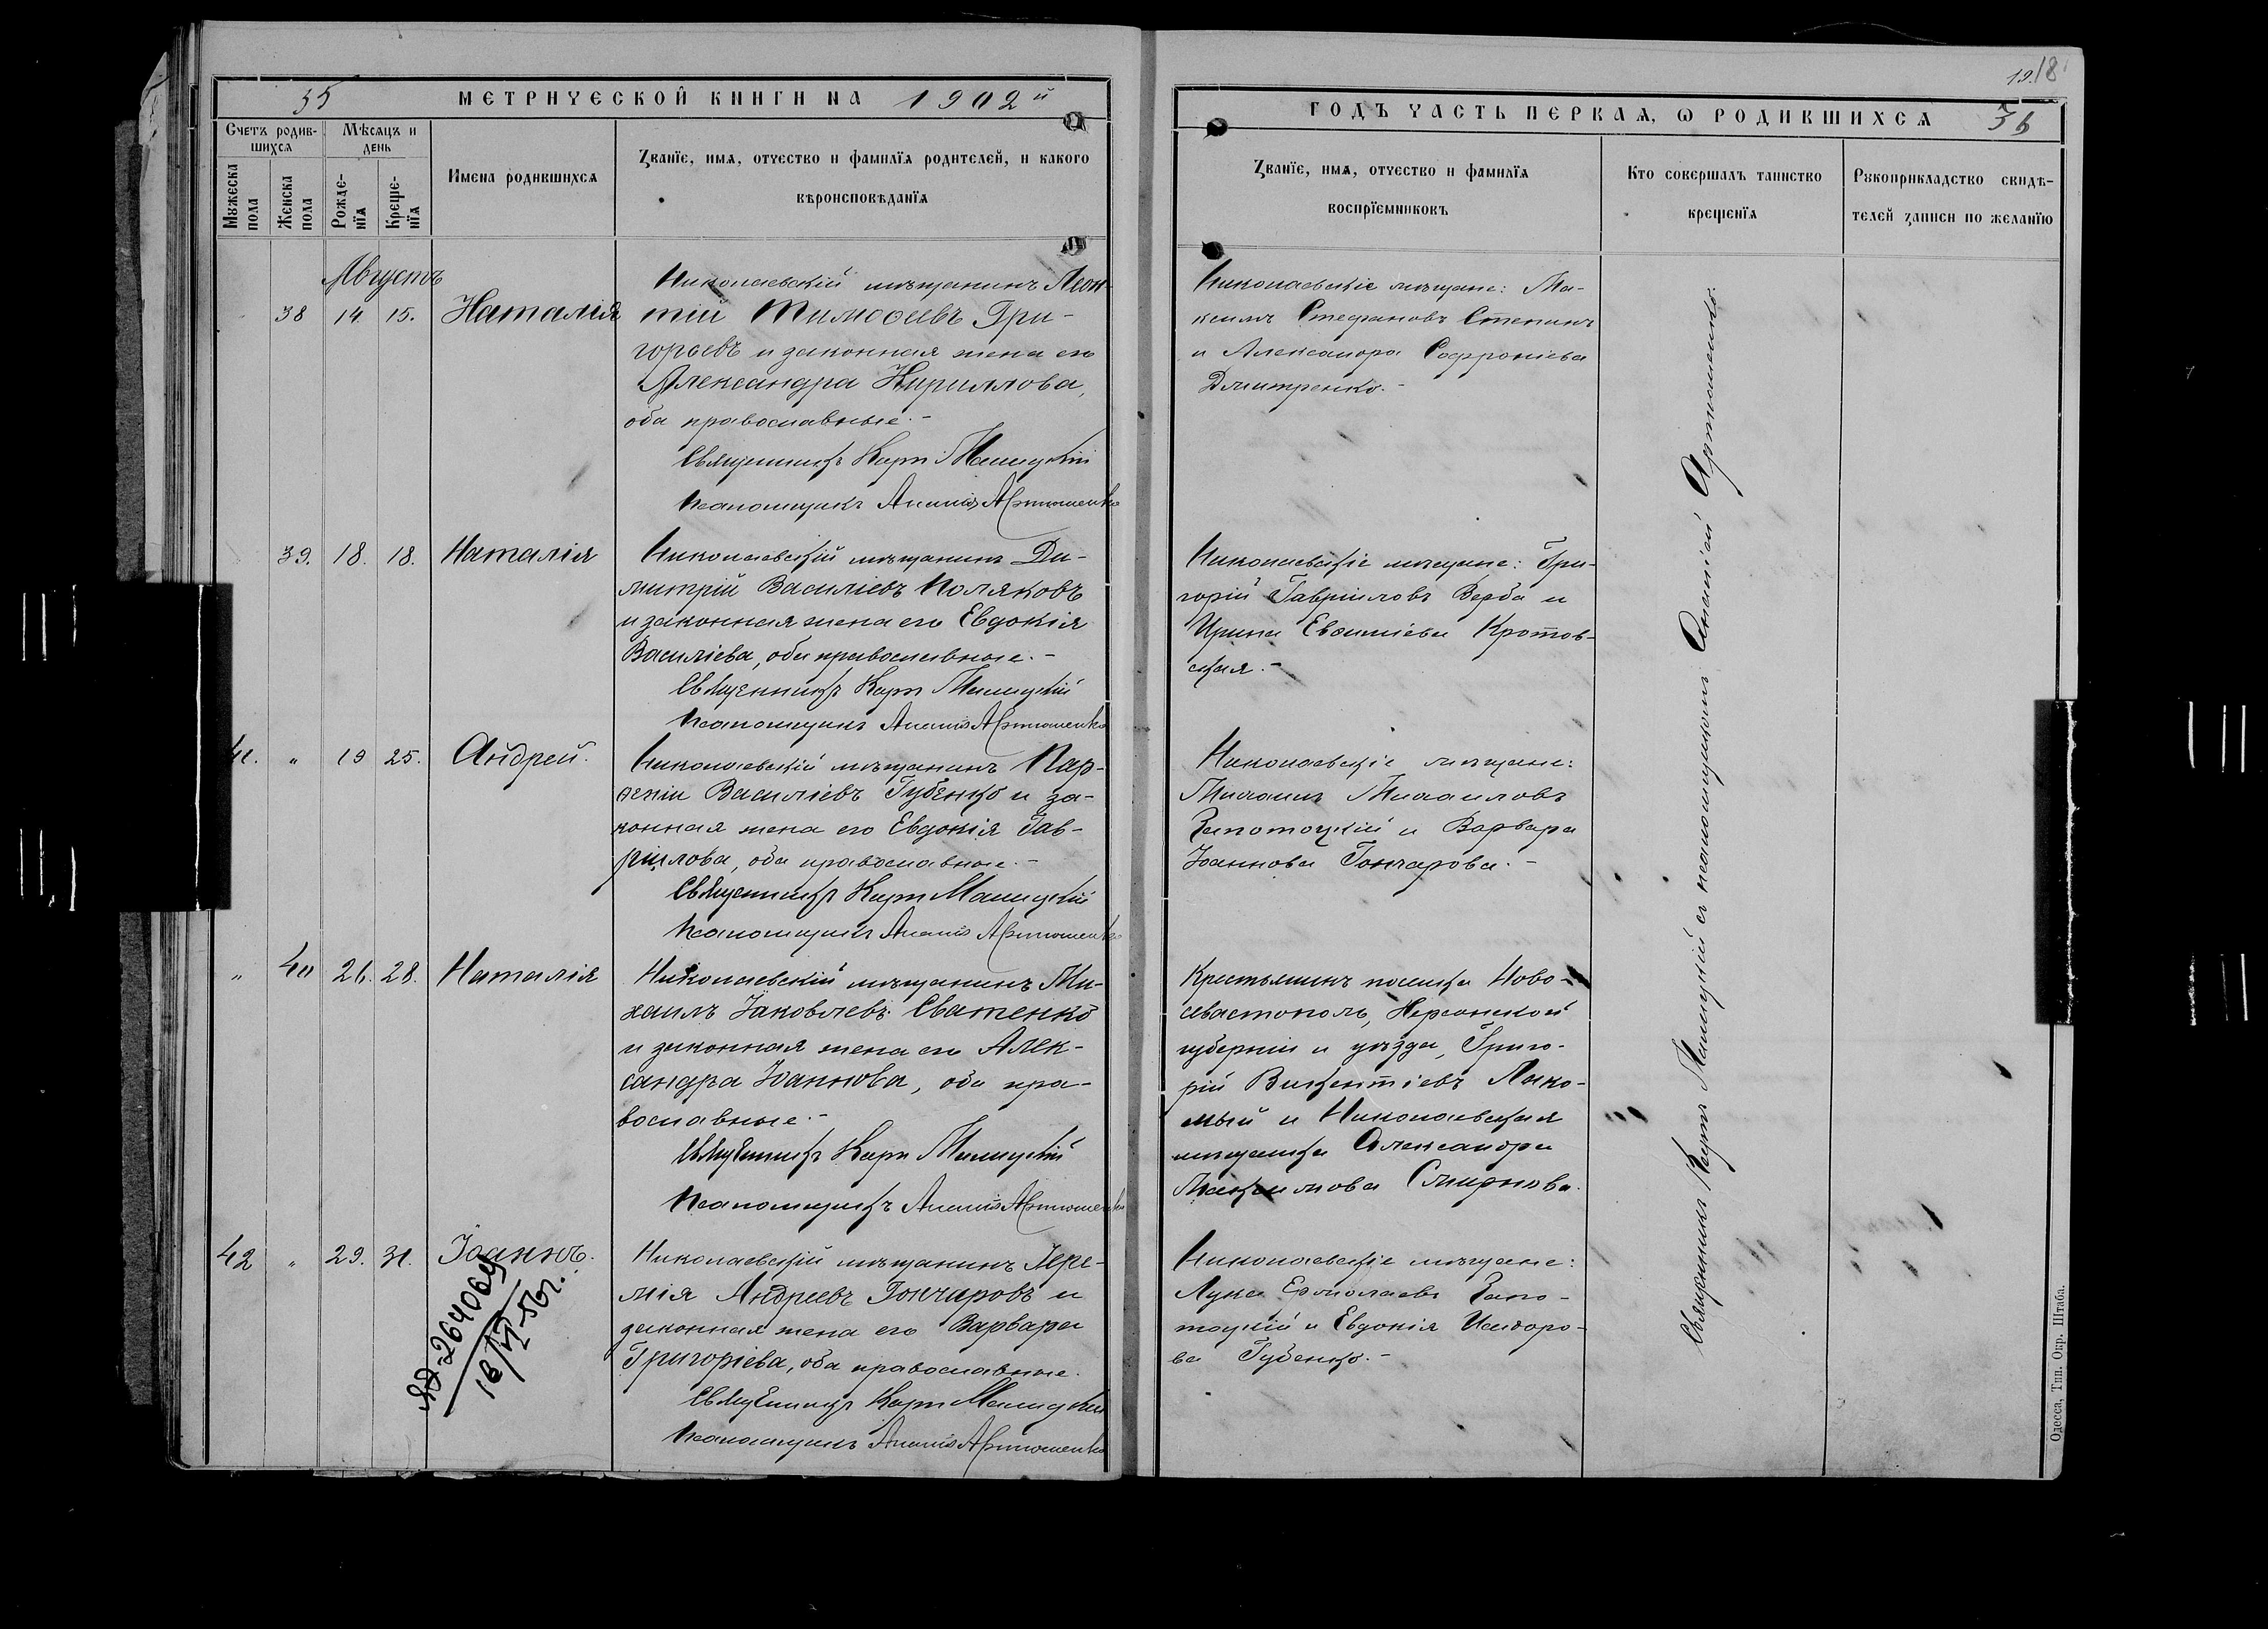 35 МЕТРИЧЕСКОЙ КНИГИ НА 1902й
Счетъ родив-
шихся
Мѣсяцъ и
день
Мужеска
пола
Женска
пола
Рожде-
нїя
Креще-
нїя
Имена родившихся
Званїе, имя, отчество и фамилїя родителей, и какого
вѣроисповѣданїя
Августъ
38 14. 15. Наталія
Николаевскій мѣщанинъ Леон-
тій Тимоѳеевъ Гри-
горьевъ и законная жена его
Александра Кириллова,
оба православные.-
Священникъ Карп
Псаломщикъ Ананій Артюшенко
39. 18. 18. Наталія
Николаевскій мѣщанинъ Ди-
митрій Василіевъ Поляковъ
и законная жена его Евдокія
Василіева, оба православные.-
Священникъ Карп
Псаломщикъ Ананій Артюшенко
41. " 19 25. Андрей.
Николаевскій мѣщанинъ Пар-
ѳеній Василіевъ Губенко и за-
конная жена его Евдокія Гав-
ріилова, оба православные.-
Священникъ Карп
Псаломщикъ Ананій Артюшенко
" 40 26. 28. Наталія
Николаевскій мѣщанинъ Ми-
хаилъ Іаковлевъ Сватенко
и законная жена его Алек-
сандра Іоаннова, оба пра-
вославные.-
Священникъ Карп
Псаломщикъ Ананій Артюшенко
42 " 29. 31. Іоаннъ.
Николаевскій мѣщанинъ Іере-
мія Андреевъ Гончаровъ и
законная жена его Варвара
Григоріева, оба православные.
Священникъ Карп
Псаломщикъ Ананій Артюшенко
2640069
18
56г.
18
ГОДЪ ЧАСТЬ ПЕРВАЯ, Ѡ РОДИВШИХСЯ 36
Званїе, имя, отчество и фамилїя
воспрїемниковъ
Кто совершалъ таинство
крещенїя
Рукоприкладство свидѣ-
телей записи по желанїю
Николаевскіе мѣщане: Ма-
ксимъ Стефановъ Степинъ
и Александра Софроніева
Дмитренко.-
Николаевскіе мѣщане: Гри-
горій Гавріиловъ Верба и
Ирина Евѳиміева Кротов-
ская.-
Николаевскіе мѣщане:
Михаилъ Михаиловъ
Запотоцкій и Варвара
Іоаннова Гончарова.-
Крестьянинъ поселка Ново-
севастополь, Херсонской
губерніи и уѣзда, Григо-
рій Викентіевъ
и Николаевская
мѣщанка Александра
Максимова Смирнова.
Николаевскіе мѣщане:
Лука Ермолаевъ Запо-
тоцкій и Евдокія Исидоро-
ва Губенко.-
Священникъ Карпъ с псаломщикомъ Ананіей Артюшенко.
Одесса, Тип. Окр. Штаба.